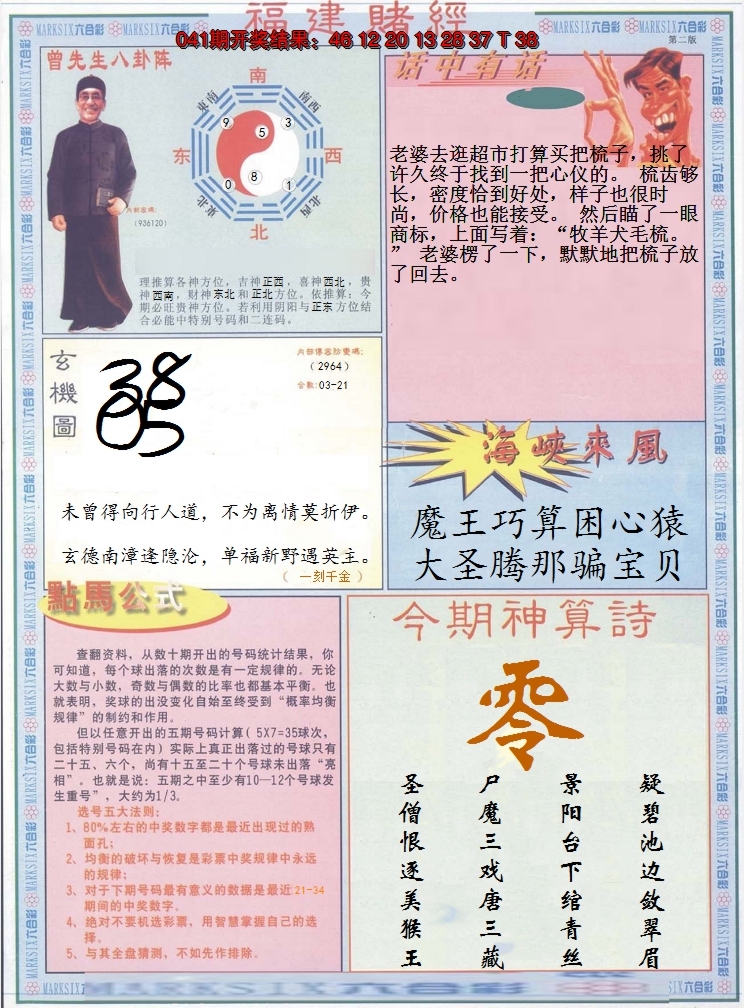 福建賭經
041期开奖结果：46 12 20 13 28 37 T 38
第二版
MARKSIX六合彩
曾先生八卦阵
南
东南
南西
9
5
3
东
西
0
8
1
东北
北西
北
内部密碼:
(936120)
理推算各神方位，吉神正西，喜神西北，贵
神西南，财神东北和正北方位。依推算：今
期必旺贵神方位。若利用阴阳与正东方位结
合必能中特别号码和二连码。
话中有话
老婆去逛超市打算买把梳子，挑了
许久终于找到一把心仪的。 梳齿够
长，密度恰到好处，样子也很时
尚，价格也能接受。 然后瞄了一眼
商标，上面写着：“牧羊犬毛梳。
” 老婆楞了一下，默默地把梳子放
了回去。
玄機圖
内部傳密防雙碼:
(2964)
合數:03-21
未曾得向行人道，不为离情莫折伊。
玄德南漳逢隐沦，单福新野遇英主。
( 一刻千金 )
海峽來風
魔王巧算困心猿
大圣腾那骗宝贝
點馬公式
查翻资料，从数十期开出的号码统计结果，你
可知道，每个球出落的次数是有一定规律的。无论
大数与小数，奇数与偶数的比率也都基本平衡。也
就表明，奖球的出没变化自始至终受到“概率均衡
规律”的制约和作用。
但以任意开出的五期号码计算( 5X7=35球次，
包括特别号码在内) 实际上真正出落过的号球只有
二十五、六个，尚有十五至二十个号球未出落“亮
相”。也就是说：五期之中至少有10—12个号球发
生重号”，大约为1/3。
选号五大法则:
1、80%左右的中奖数字都是最近出现过的熟
面孔;
2、均衡的破坏与恢复是彩票中奖规律中永远
的规律;
3、对于下期号码最有意义的数据是最近21-34
期间的中奖数字。
4、绝对不要机选彩票，用智慧掌握自己的选
择。
5、与其全盘猜测，不如先作排除。
今期神算詩
零
圣僧恨逐美猴王
尸魔三戏唐三藏
景阳台下绾青丝
疑碧池边敛翠眉